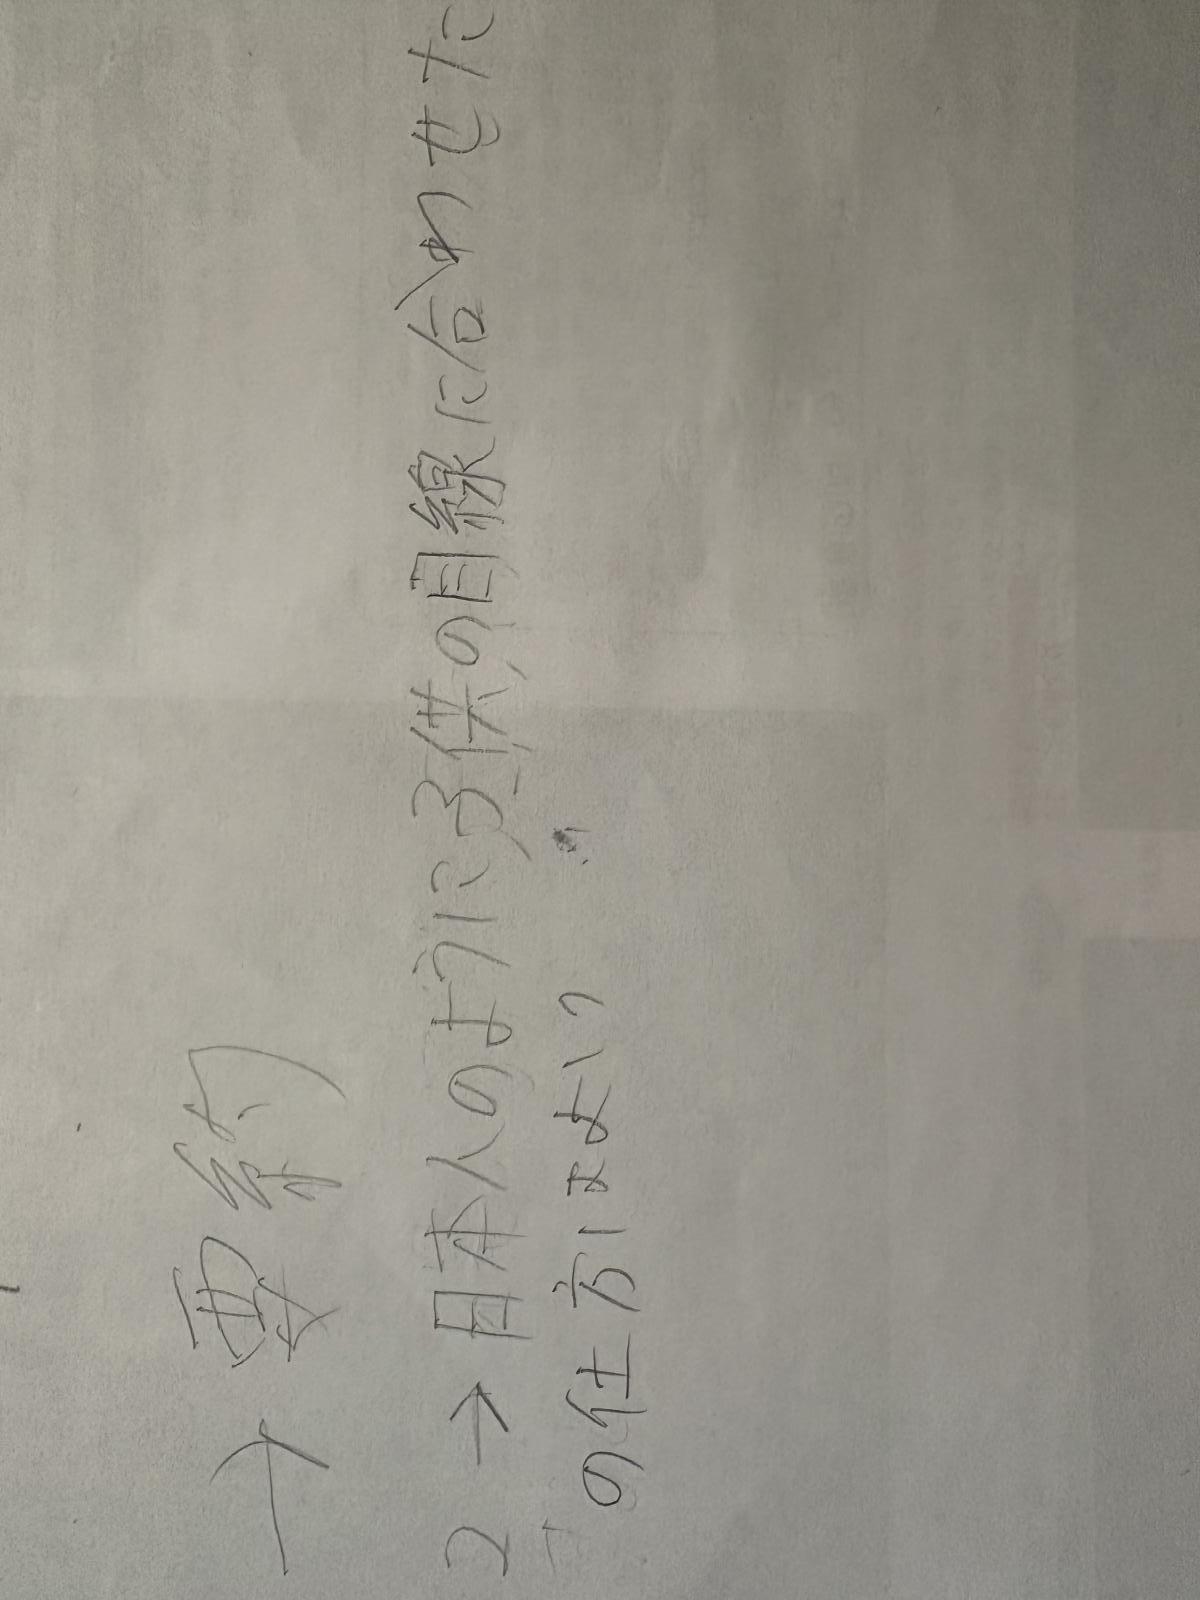 →要約
2→日本人のように子供の目線に合わせた
の仕方はよい